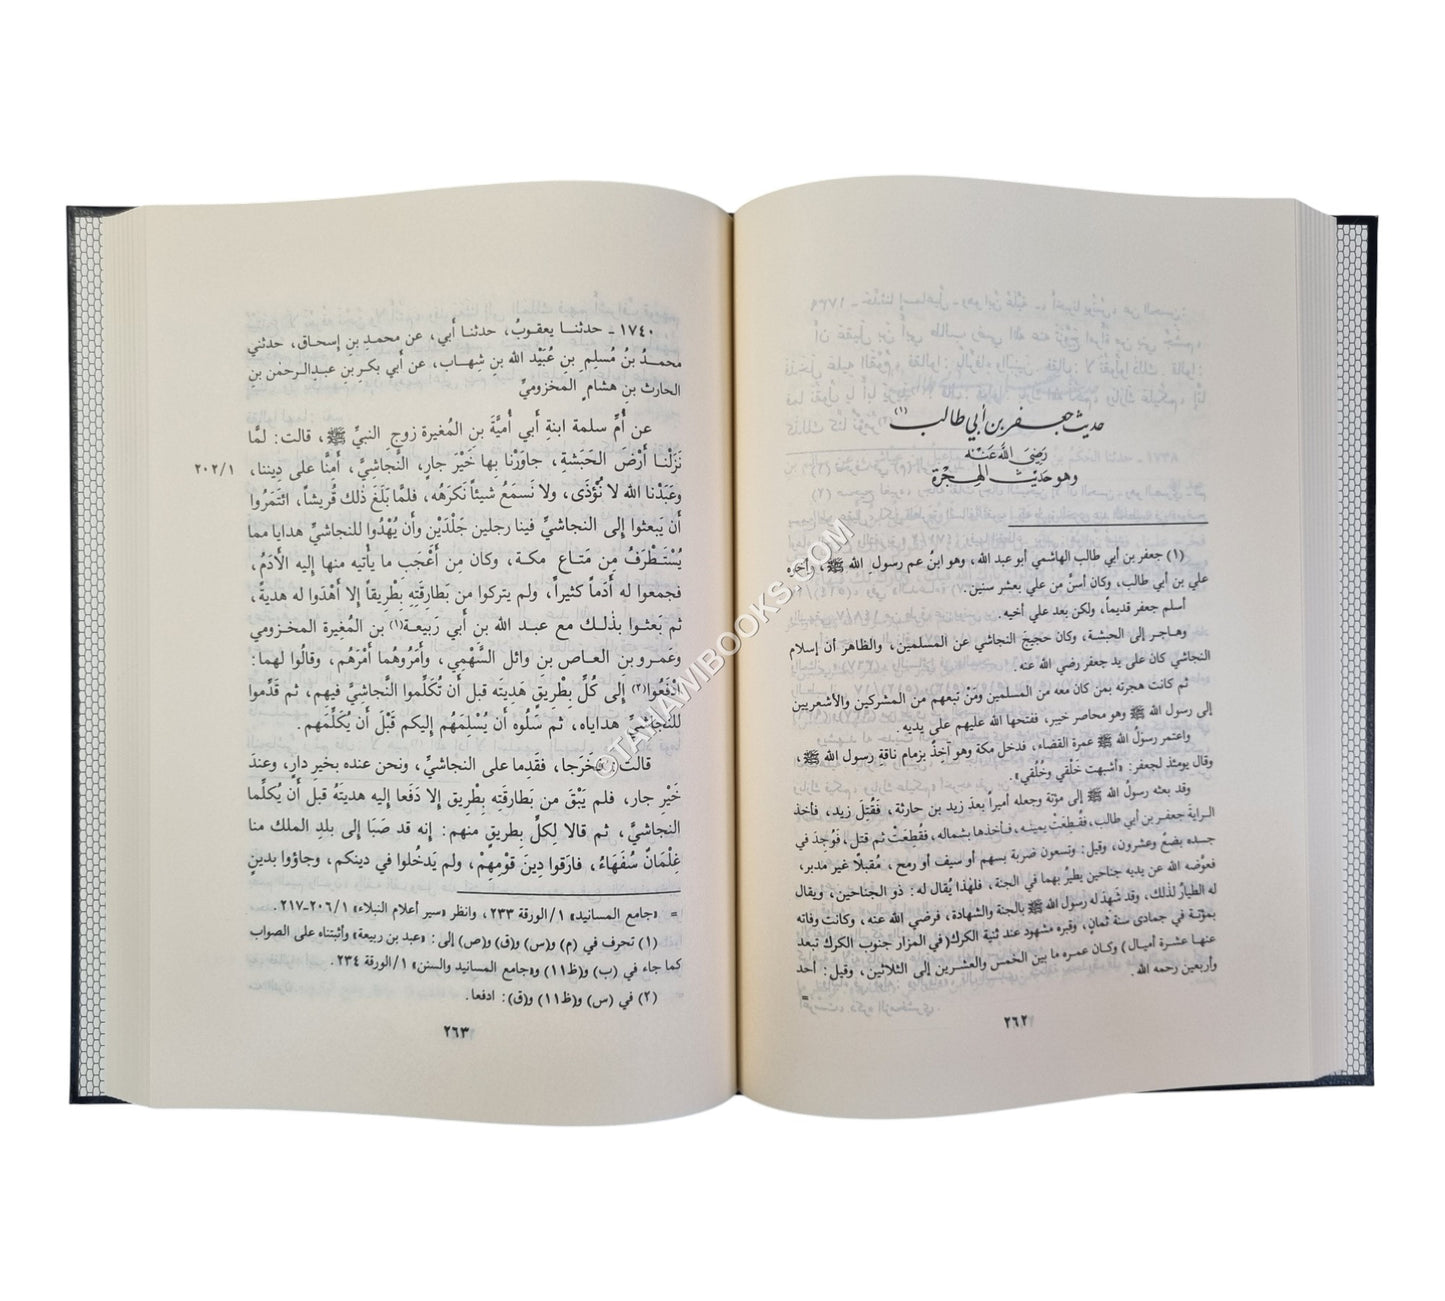 حديث جعفر بن أبي طالب (١)
رَضِيَ اللهُ عَنْهُ
وهو حَدِيْث الهِجْرة
(١) جعفر بن أبي طالب الهاشمي أبو عبد الله، وهو ابنُ عم رسولِ الله ﷺ، وأخوه
علي بن أبي طالب، وكان أسنَّ من علي بعشر سنين.
أسلم جعفر قديماً، ولكن بعد علي أخيه.
وهاجر إلى الحبشة، وكان حجيجَ النجاشي عن المسلمين، والظاهر أن إسلام
النجاشي كان على يد جعفر رضي الله عنه.
ثم كانت هجرته بمن كان معه من المسلمين ومَنْ تبعهم من المشركين والأشعريين
إلى رسول الله ﷺ وهو محاصر خيبر، ففتحها الله عليهم على يديه.
واعتمر رسولُ الله ﷺ عمرة القضاء، فدخل مكة وهو آخِذٌ بزمام ناقةِ رسول الله ﷺ،
وقال يومئذ لجعفر: «أشبهت خَلْقي وخُلُقي».
وقد بعثه رسولُ الله ﷺ إلى مؤتة وجعله أميراً بعدَ زيد بن حارثة، فَقُتِلَ زيد، فأخذ
الرايةَ جعفر بن أبي طالب، فقُطِعَتْ يمينه، فأخذها بشماله، فقُطِعَتْ ثم قتل، فَوُجدَ في
جسده بضعٌ وعشرون، وقيل: وتسعون ضربة بسهم أو سيف أو رمح، مُقبلاً غير مدبر،
فعوَّضه الله عن يديه جناحين يطيرُ بهما في الجنة، فلهٰذا يُقال له: ذو الجناحين، ويقال
له الطيارُ لذلك، وقد شَهِدَ له رسولُ الله ﷺ بالجنة والشهادة، فرضي الله عنه، وكانت وفاته
بمؤتة في جمادى سنة ثمانٍ، وقبره مشهود عند ثنية الكرك( في المزار جنوب الكرك تبعد
عنها عشرة أميال) وكان عمره ما بين الخمس والعشرين إلى الثلاثين، وقيل: أحد
وأربعين رحمه الله.
=
٢٦٢
١٧٤٠ ـ حدثنا يعقوبُ، حدثنا أبي، عن محمدِ بنِ إسحاق، حدثني
محمدُ بنُ مُسلِم بنِ عُبَيْد الله بنِ شِهاب، عن أَبي بكرِ بنِ عبدِالرحمٰن بنِ
الحارث بنِ هشامٍ المخزوميِّ
عن أُمِّ سلمة ابنةِ أَبي أُميَّةَ بنِ المُغيرة زوجِ النبيِّ ﷺ، قالت: لمَّا
نَزَلْنا أَرْضَ الحَبَشةِ، جاوَرْنا بِها خَيْرَ جارٍ، النَّجاشيَّ، أَمِنَّا على دِيننا،
٢٠٢/١
وعَبَدْنا الله لا نُؤْذَى، ولا نَسمَعُ شيئاً نَكرَهُه، فلمَّا بَلَغَ ذٰلك قُريشاً، ائتَمَرُوا
أَن يَبعثوا إلى النجاشيِّ فينا رجلين جَلْدَيْن وأَن يُهْدُوا للنجاشيِّ هدايا مما
يُسْتَطْرَفُ مِن مَتَاعِ مكة، وكان مِن أَعْجَبِ ما يأْتيه منها إليه الأَدَمُ،
فجمعوا له أَدَماً كثيراً، ولم يتركوا من بَطارِقَتِهِ بِطْرِيقاً إلا أَهْدَوا له هديةً،
ثم بَعَثوا بذٰلك مع عبد الله بن أَبي رَبيعة(١) بن المُغيرة المخزومي
وعَمرو بنِ العاص بنِ وائل السَّهْمي، وأَمَرُوهما أَمْرَهُم، وقالُوا لهما:
ادْفَعُوا(٢) إلى كُلِّ بِطْرِيقٍ هَديتَه قبل أَن تُكَلِّموا النَّجاشيَّ فيهم، ثم قَدِّموا
للنجاشيِّ هداياه، ثم سَلُوه أَن يُسْلِمَهُم إليكم قَبْلَ أَن يُكلِّمَهم.
قالت: فخَرَجا، فقَدِما على النجاشيِّ، ونحن عنده بخيرِ دارٍ، وعند
خَيْرِ جار، فلم يَبْقَ من بَطارقَتِه بِطْريق إلا دَفَعا إليه هديتَهُ قبل أَن يُكلِّما
النجاشيَّ، ثم قالا لِكلِّ بِطريق منهم: إنه قد صَبَا إلى بلدِ الملك منا
غِلْمَانٌ سُفَهَاءُ، فارَقوا دِينَ قوْمِهِمْ، ولم يَدخُلوا في دينكم، وجاؤوا بدينٍ
= «جامع المسانيد» ١/الورقة ٢٣٣، وانظر «سير أعلام النبلاء» ٢٠٦/١-٢١٧.
(١) تحرف في (م) و(س) و(ق) و(ص) إلى: «عبد بن ربيعة» وأثبتناه على الصواب
كما جاء في (ب) و(ظ١١) و«جامع المسانيد والسنن» ١/الورقة ٢٣٤.
(٢) في (س) و(ظ١١) و(ق): ادفعا.
٢٦٣
©TANAMIBOOKS.COM